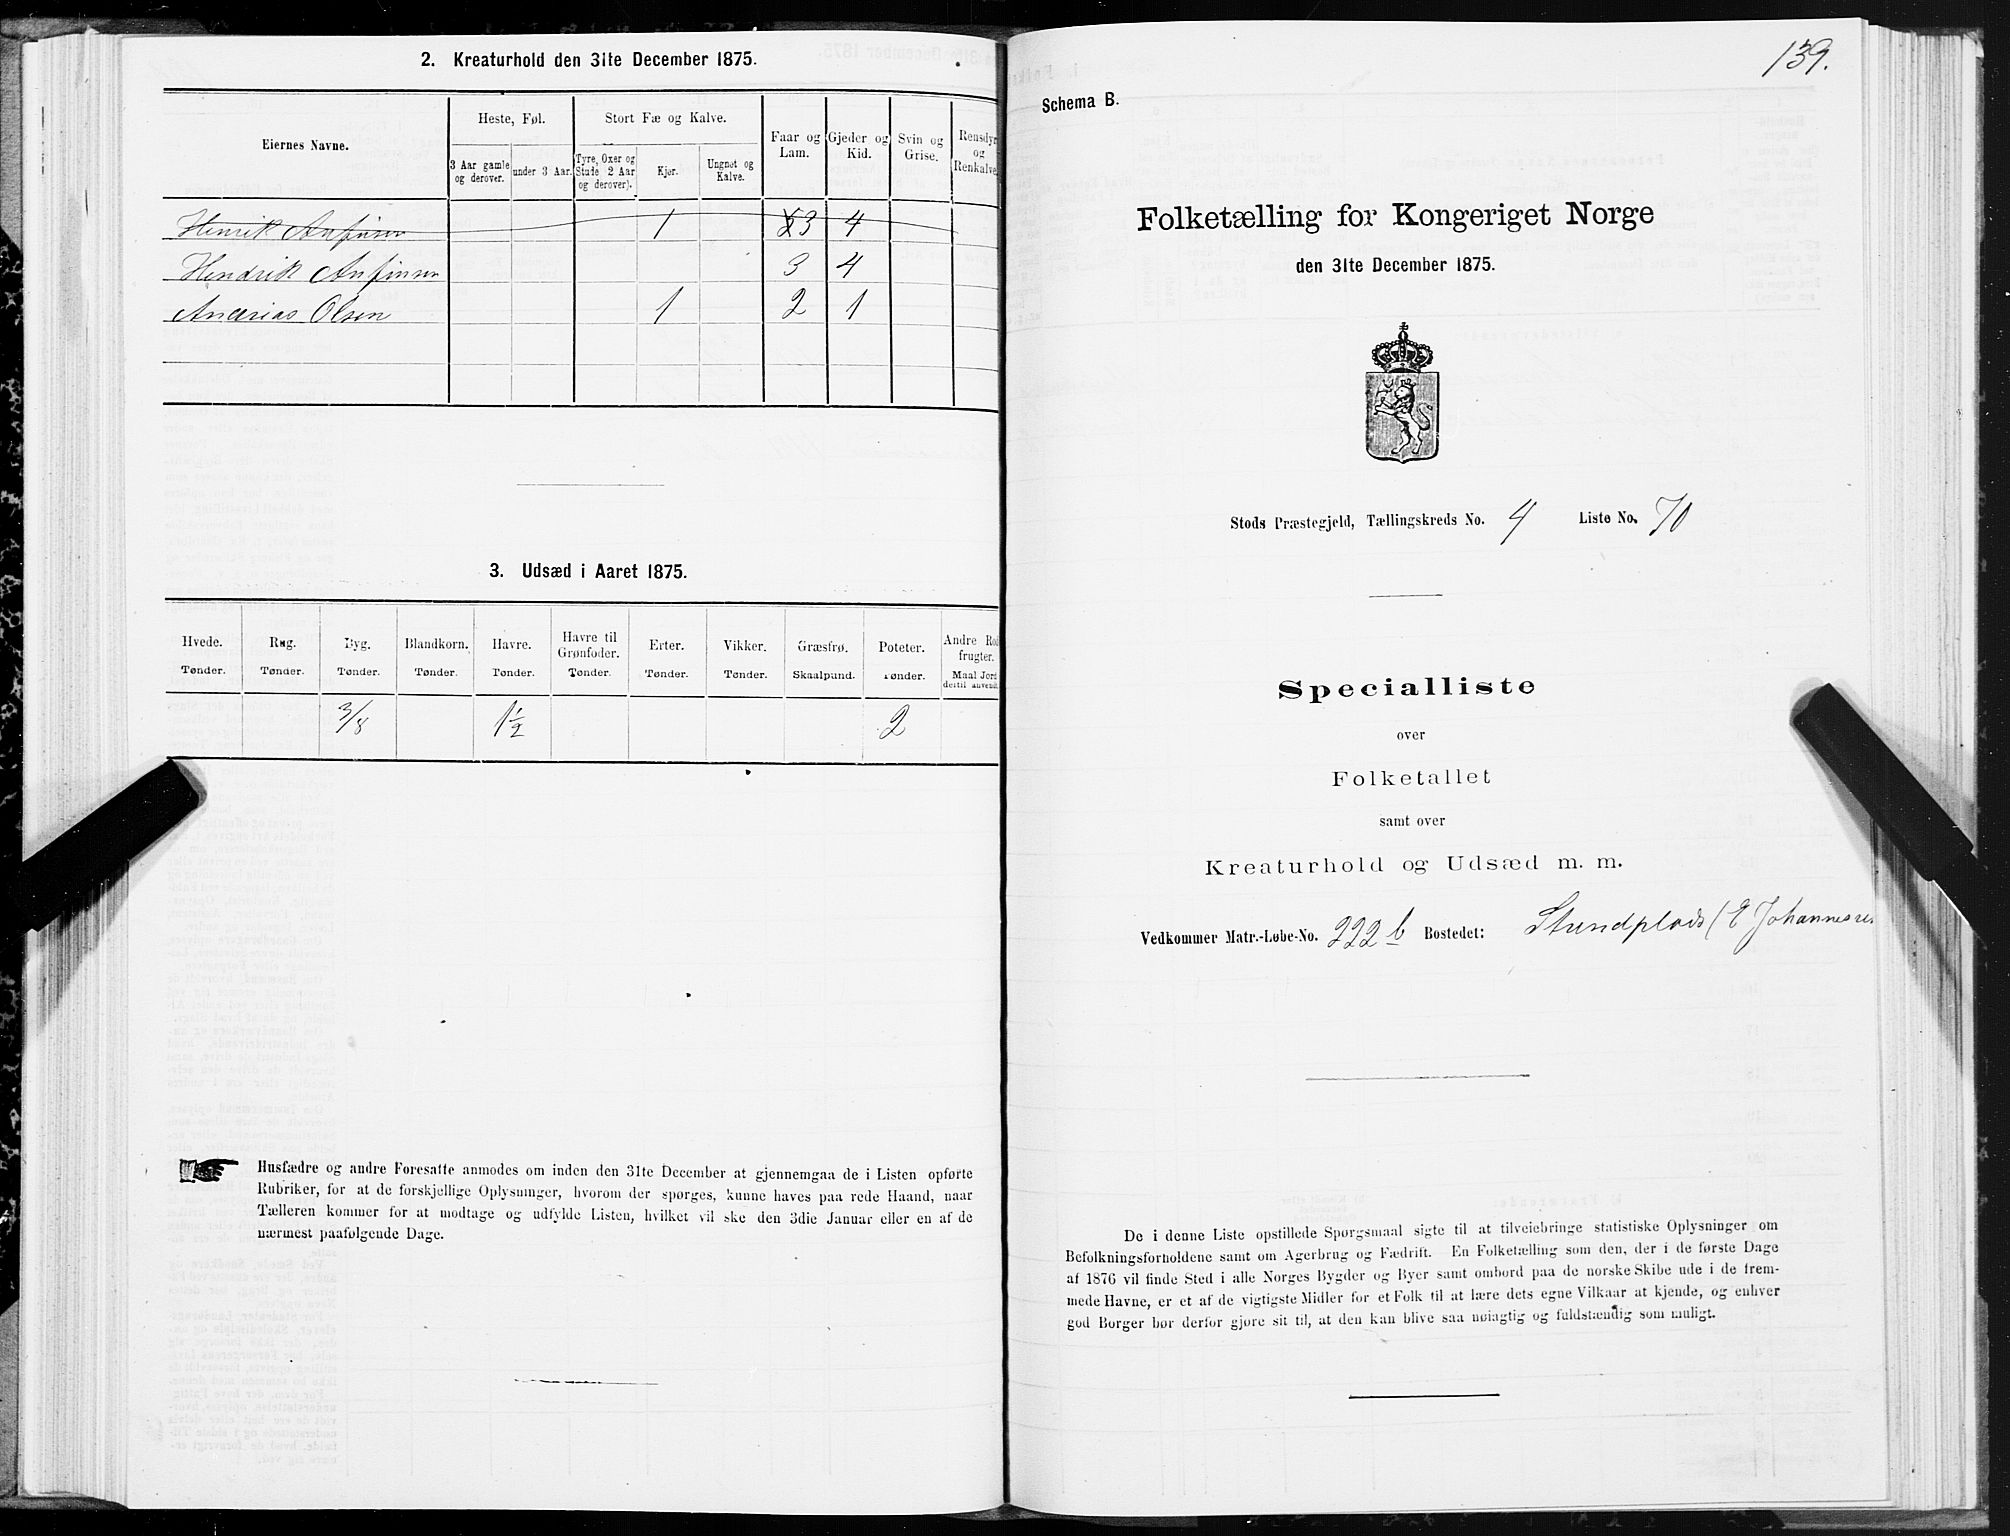 2. Kreaturhold den 31te December 1875.
Eiernes Navne.
Heste, Føl.
Stort Fæ og Kalve.
Faar og Lam.
Gjeder og Kid.
Svin og Grise.
Rensdyr og Renkalve.
3 Aar gamle og derover.
under 3 Aar.
Tyre, Oxer og Stude 2 Aar og derover).
Kjør.
Ungnøt og Kalve.
Henrik Anfinsen 1 3 4
Hendrik Anfinsen 3 4
Andreas Olsen 1 2 1
3. Udsæd i Aaret 1875.
Hvede. Rug. Byg. Blandkorn. Havre. Havre til Grønfoder. Erter. Vikker. Græsfrø. Poteter. Andre Rodfrugter.
Tønder. Tønder. Tønder. Tønder. Tønder. Tønder. Tønder. Tønder. Skaalpund. Tønder. Maal Jord dertil anvendt
3/8 1 1/2 2
Husfædre og andre Foresatte anmodes om inden den 31te December at gjennemgaa de i Listen opførte
Rubriker, for at de forskjellige Oplysninger, hvorom der spørges, kunne haves paa rede Haand, naar
Tælleren kommer for at modtage og udfylde Listen, hvilket vil ske den 3die Januar eller en af de
nærmest paafølgende Dage.
139.
Schema B.
Folketælling for Kongeriget Norge
den 31te December 1875.
Stods Præstegjeld, Tællingskreds No. 4 Liste No. 70
Specialliste
over
Folketallet
samt over
Kreaturhold og Udsæd m. m.
Vedkommer Matr.-Løbe-No. 222 b Bostedet: Strindplads (E Johannesen
De i denne Liste opstillede Spørgsmaal sigte til at tilveiebringe statistiske Oplysninger om
Befolkningsforholdene samt om Agerbrug og Fædrift. En Folketælling som den, der i de første Dage
af 1876 vil finde Sted i alle Norges Bygder og Byer samt ombord paa de norske Skibe ude i de frem-
mede Havne, er et af de vigtigste Midler for et Folk til at lære dets egne Vilkaar at kjende, og enhver
god Borger bør derfor gjøre sit til, at den kan blive saa nøiagtig og fuldstændig som muligt.